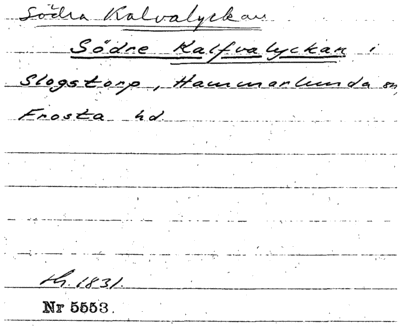 Södra Kalvalyckan
Södre Kalfvalyckan i
Slogstorp, Hammarlunda sn,
Frosta hd
1831.
Nr 5553.